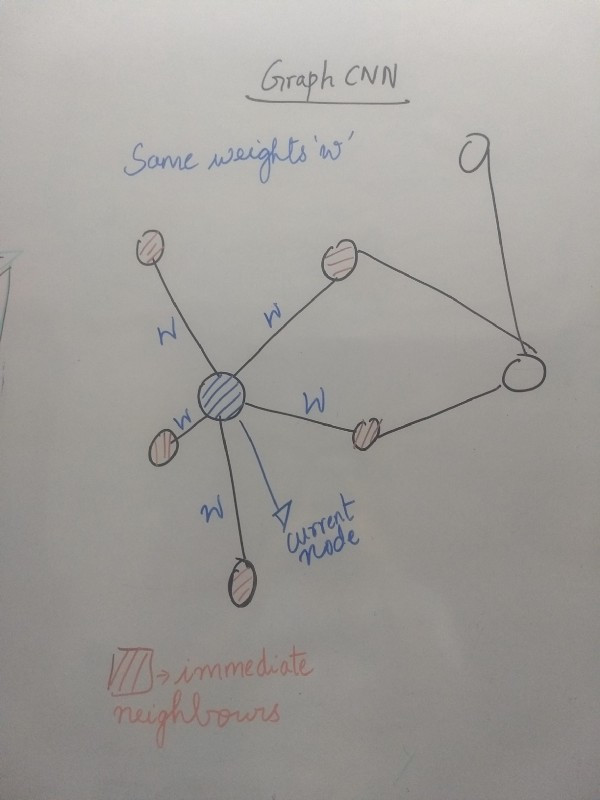 Graph CNN
Same weights 'w'
W
W
W
W
W
current
node
→ immediate
neighbours